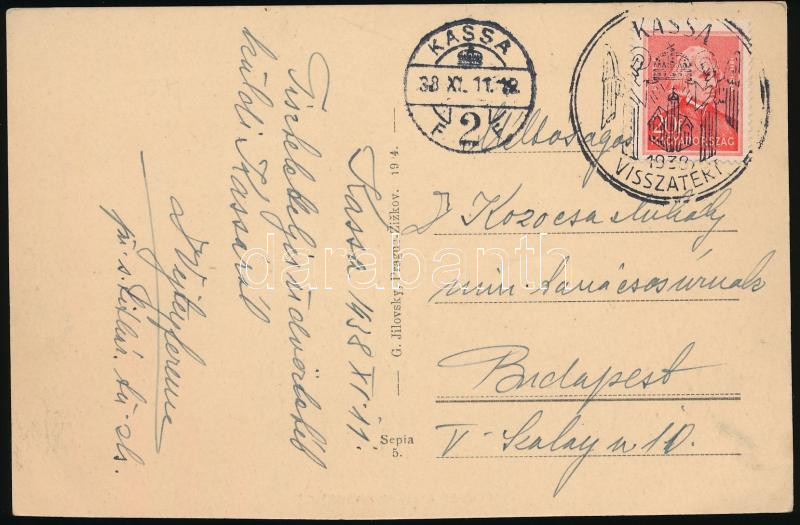 KASSA
38 XI. 11. 12
2
KASSA
20f
MAGYARORSZÁG
1938
VISSZATÉRT
Kassa 1938 XI. 11.
Tisztelettel
küldi Kassáról
G. Jilovsky, Prague-Žižkov. 194.
Sepia
5.
Méltóságos
Kozocsa Mihály
min. tanácsos úrnak
Budapest
V. Szalay u 10.
darabanth